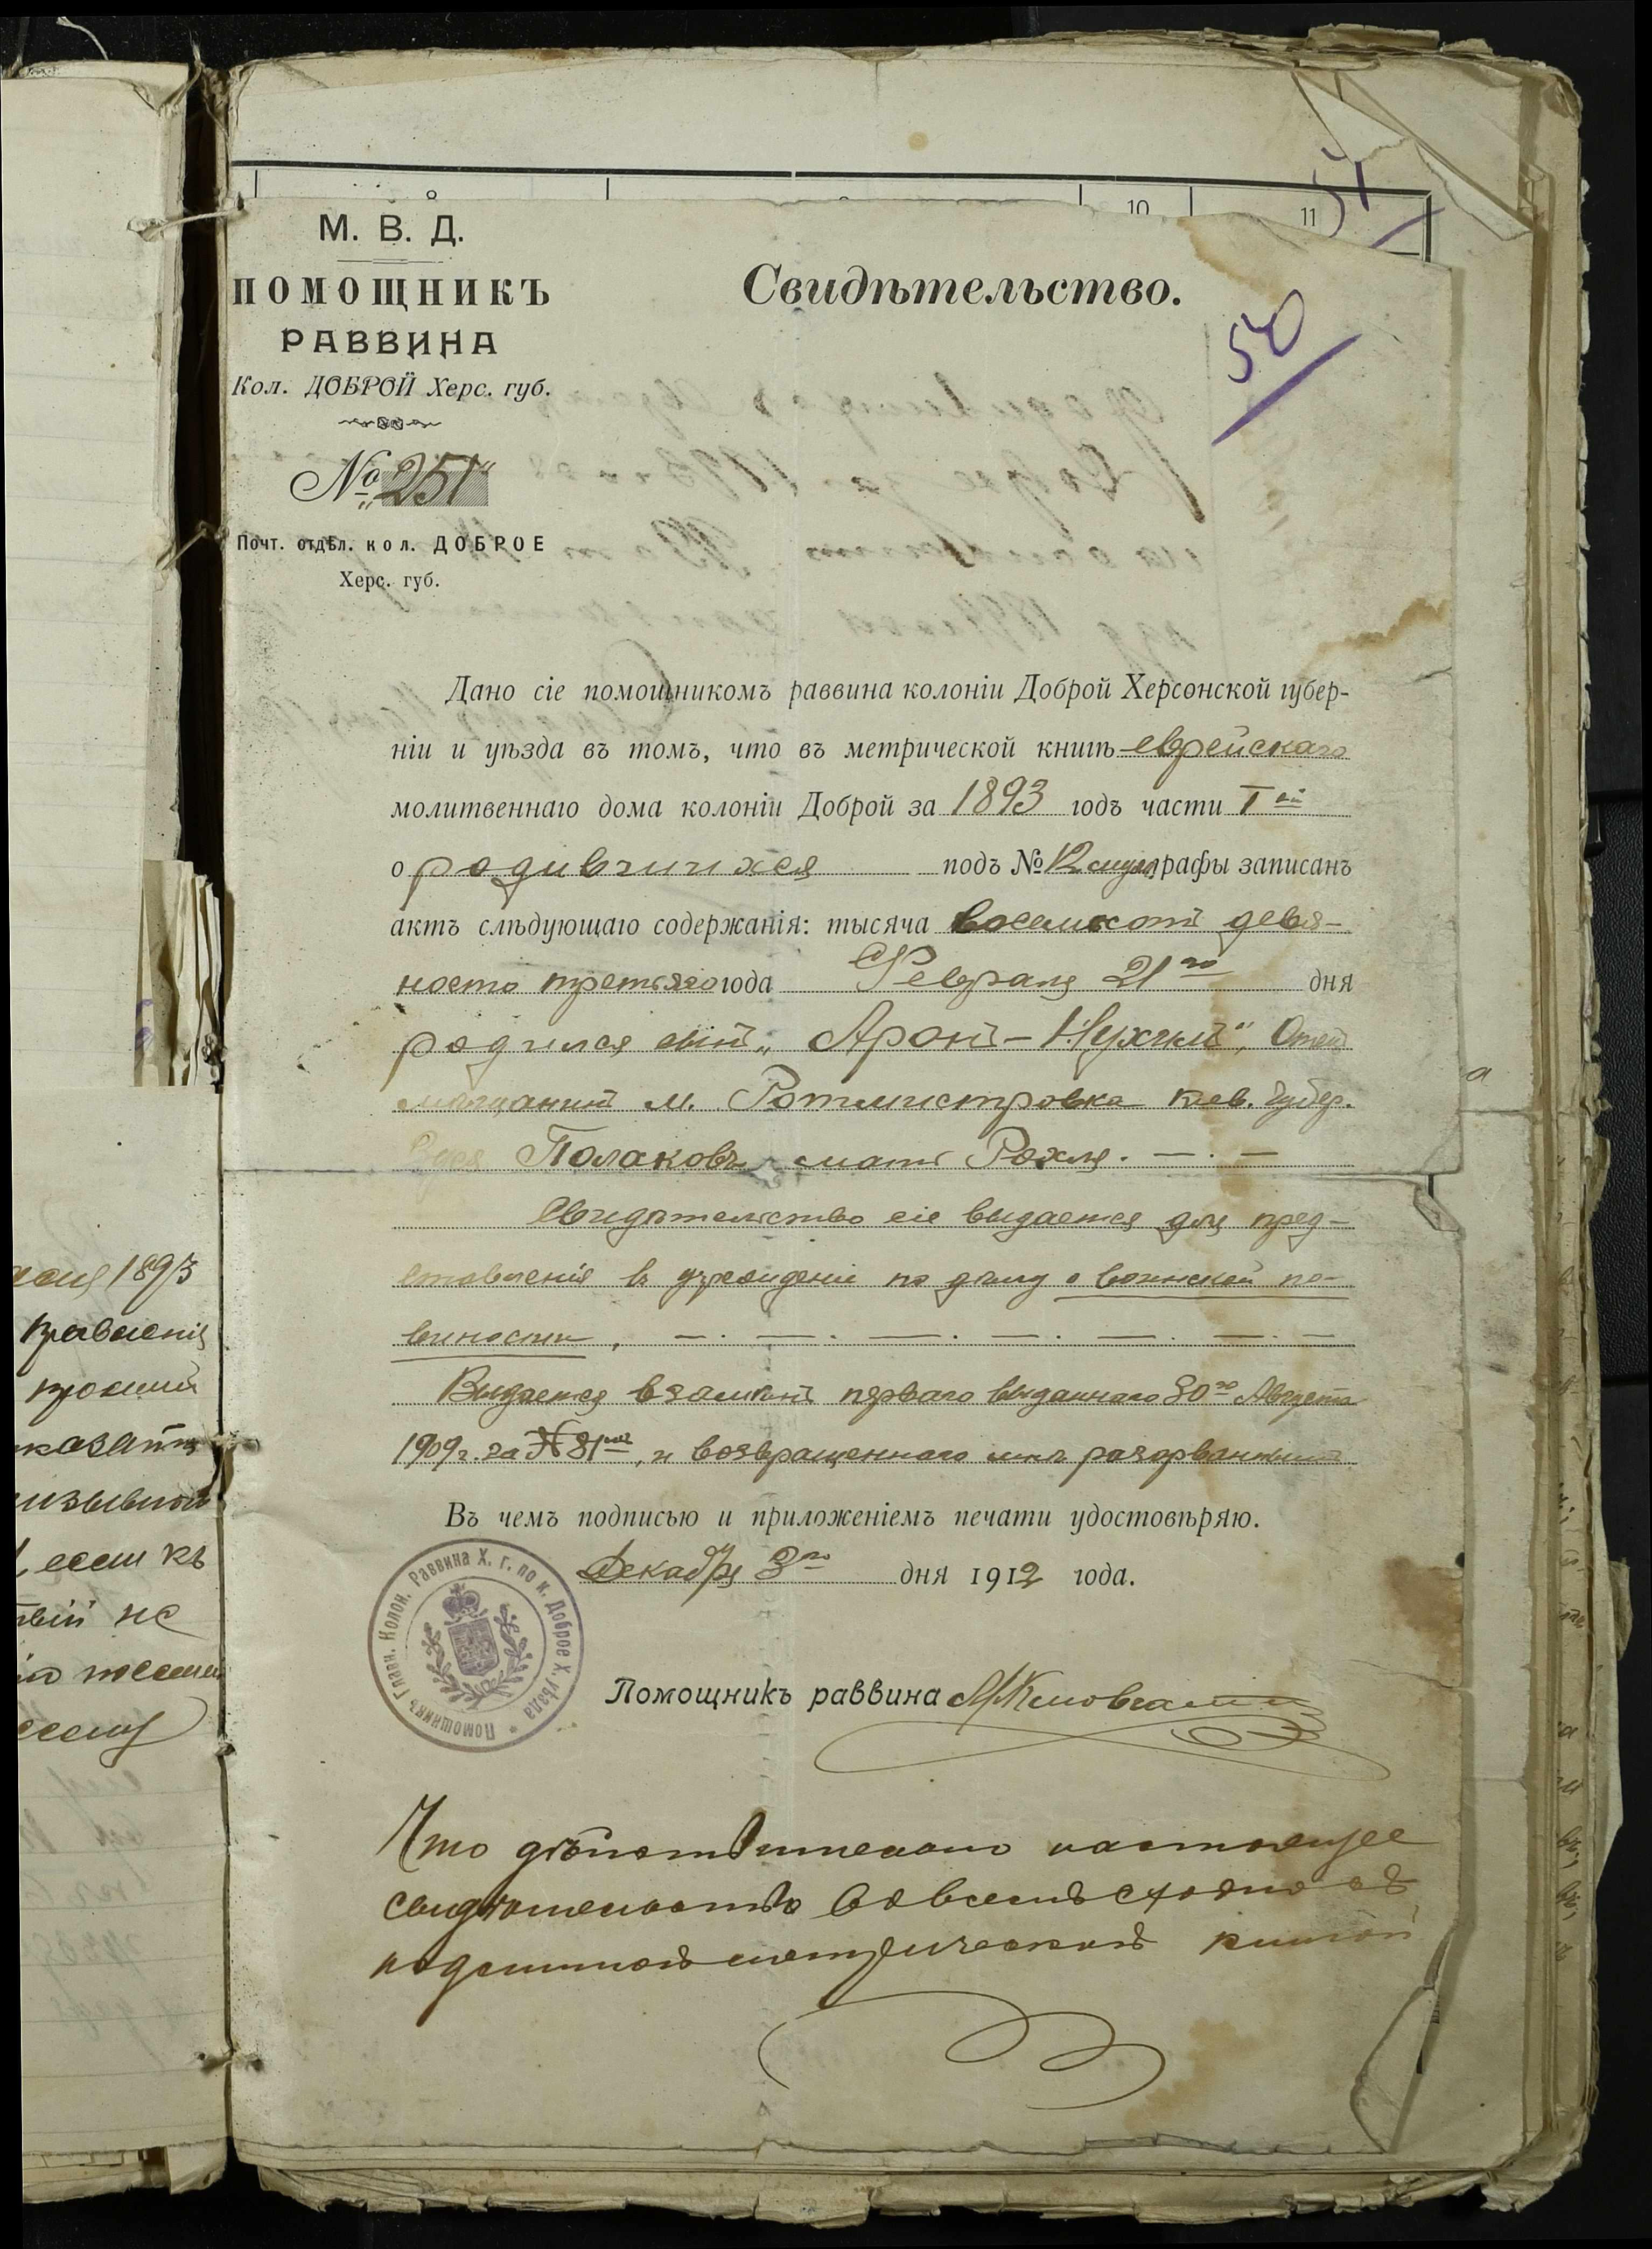 10
11
51
М. В. Д.
ПОМОЩНИКЪ
РАВВИНА
Кол. ДОБРОЙ Херс. губ.
№ „251“
Почт. отдѣл. кол. ДОБРОЕ
Херс. губ.
Свидѣтельство.
50
Дано сіе помощникомъ раввина колоніи Доброй Херсонской губер-
ніи и уѣзда въ томъ, что въ метрической книгѣ еврейскаго
молитвеннаго дома колоніи Доброй за 1893 годъ части I ой
о родившихся подъ № 12 графы записанъ
актъ слѣдующаго содержанія: тысяча восемьсотъ девя-
носто третьяго года Февраля 21го дня
родился сынъ „Аронъ-Нухимъ“, Отецъ
мѣщанинъ м. Ротмистровка Кіев. Губер.
Полаковъ, мать Рохля. — . —
Свидѣтельство сіе выдается для пред-
ставленія въ учрежденіе по дѣлу о воинской по-
винности, — . — . — . — . — . — . —
Выдается взамѣнъ перваго выданнаго 30го Августа
1909 г. за № 81мъ, и возвращеннаго мнѣ разорваннымъ
Въ чемъ подписью и приложеніемъ печати удостовѣряю.
Декабря 3го дня 1912 года.
Помощникъ Глав. Колон. Раввина Х. г. по к. Доброе Х. уѣзда
Помощникъ раввина
Что дѣйствительно настоящее
свидѣтельство во всемъ сходно съ
подлинной метрической книгой
1893
правленія
казать
если къ
не
а